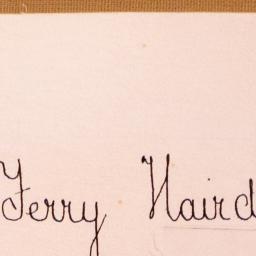 Jerry Haird